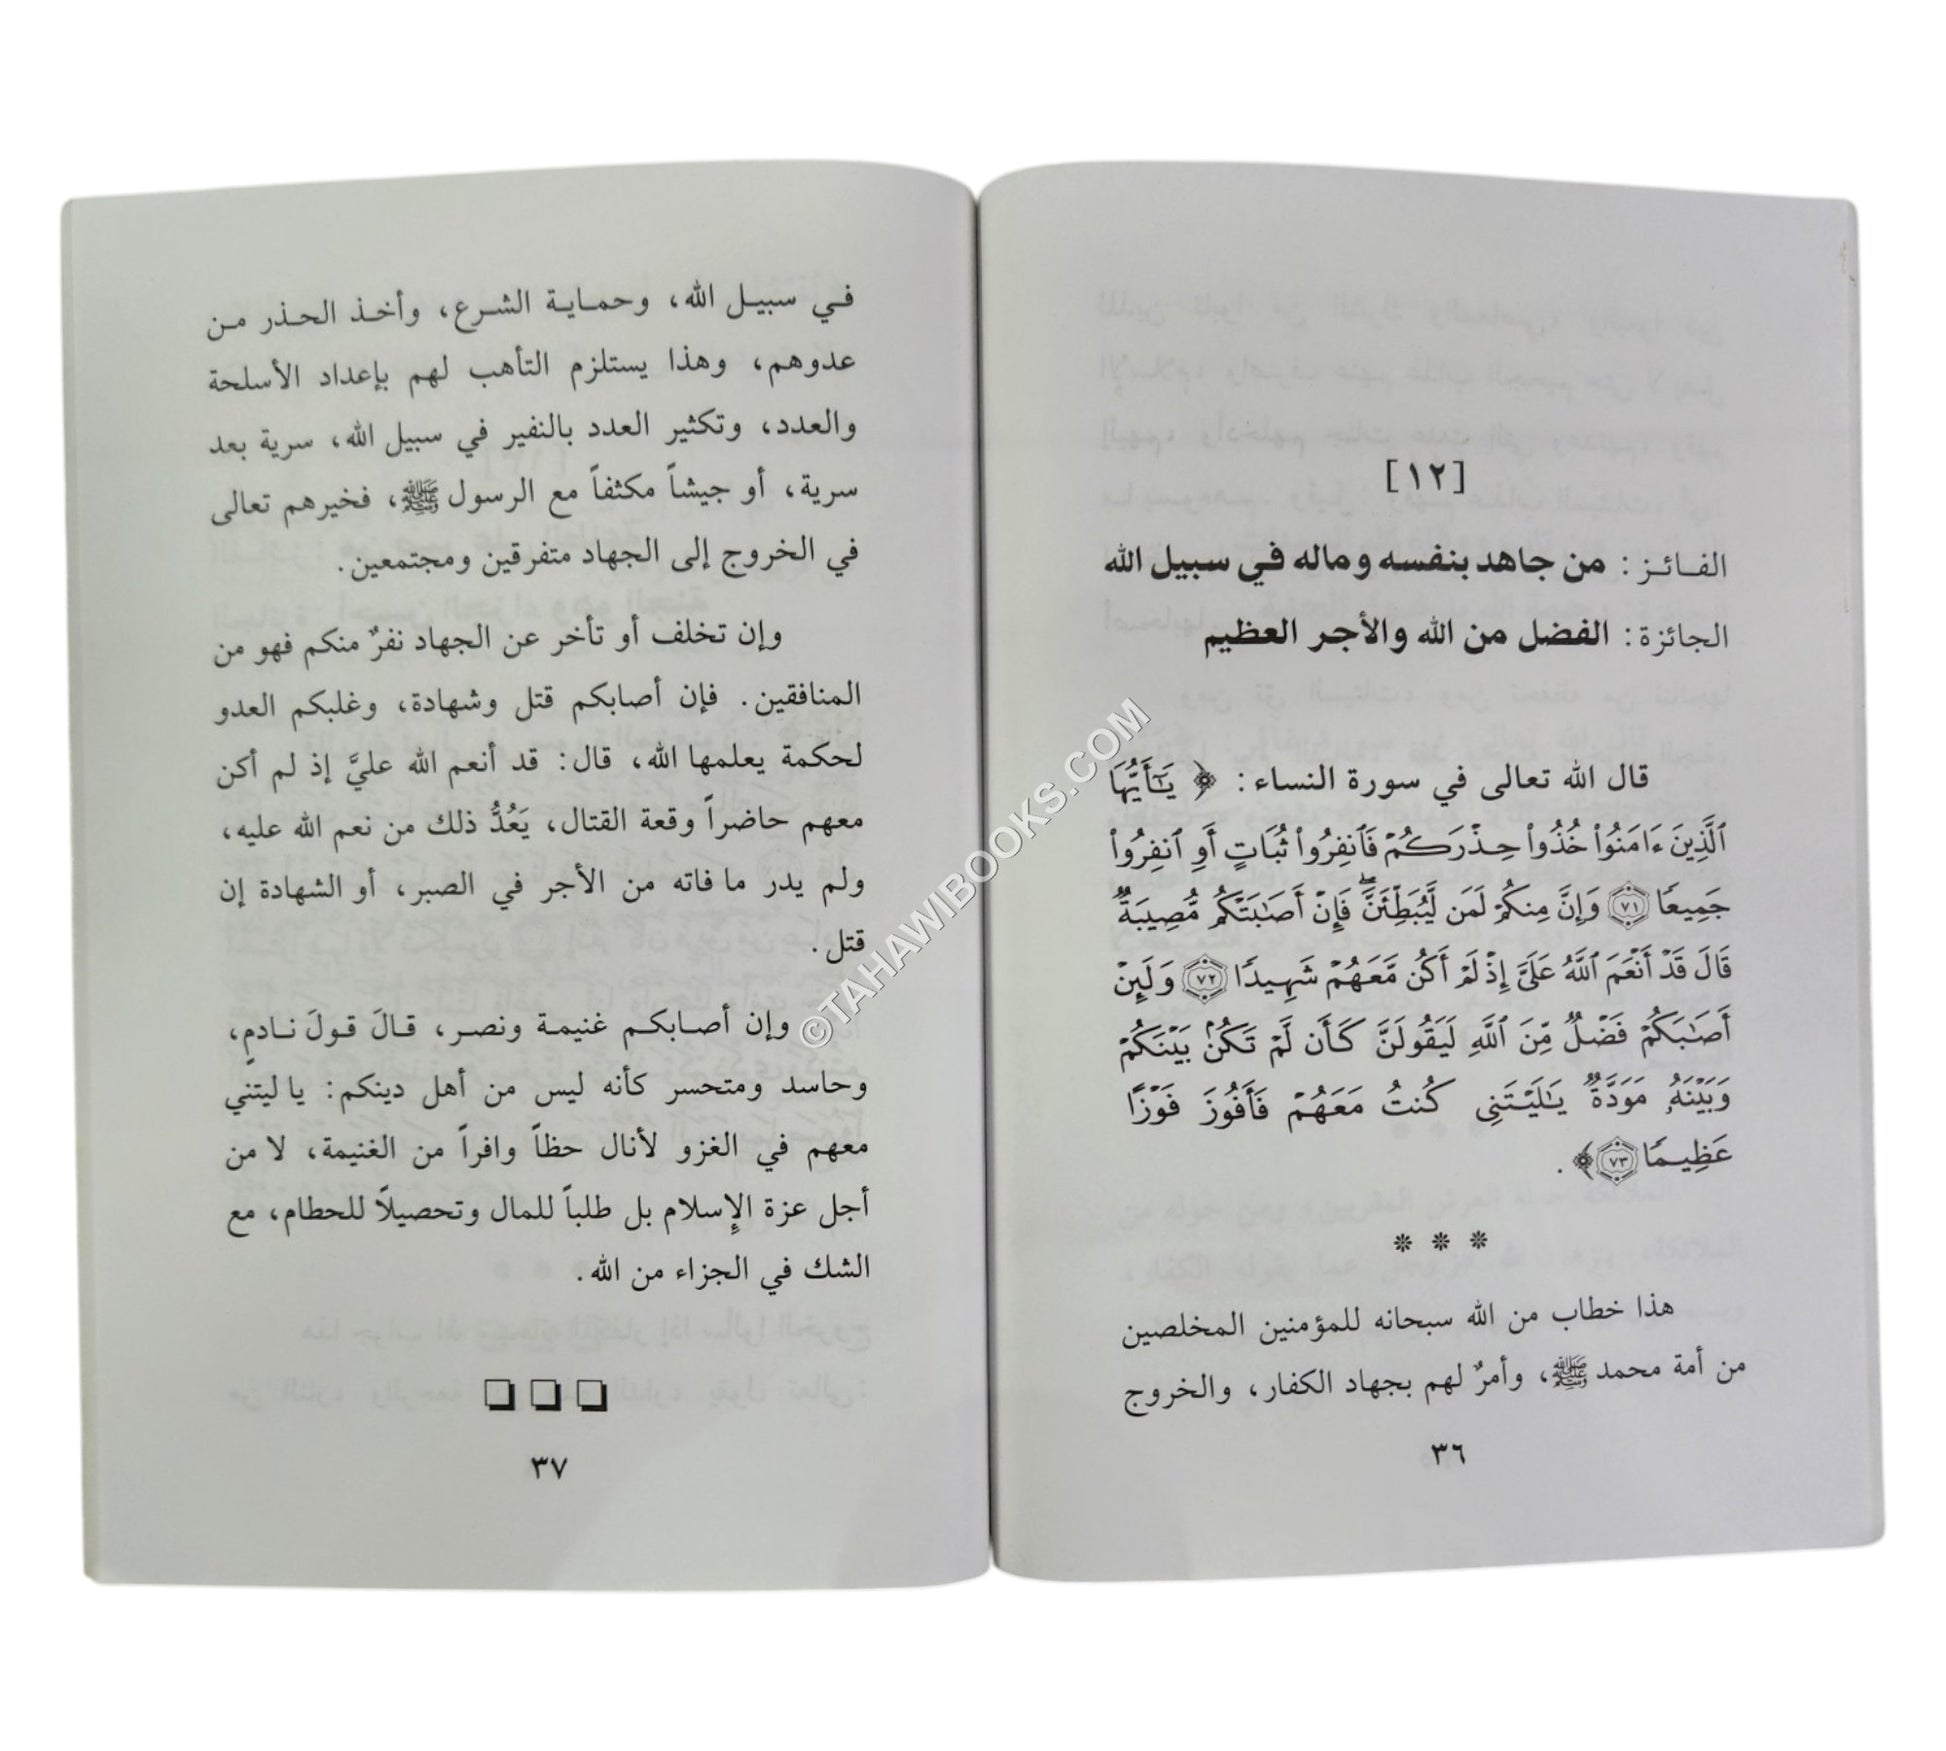 [١٢]
الفـائـز: من جاهد بنفسه وماله في سبيل الله
الجائزة: الفضل من الله والأجر العظيم
قال الله تعالى في سورة النساء: ﴿ يَٰٓأَيُّهَا
ٱلَّذِينَ ءَامَنُوا۟ خُذُوا۟ حِذْرَكُمْ فَٱنفِرُوا۟ ثُبَاتٍ أَوِ ٱنفِرُوا۟
جَمِيعًا ٧١ وَإِنَّ مِنكُمْ لَمَن لَّيُبَطِّئَنَّ ۖ فَإِنْ أَصَٰبَتْكُم مُّصِيبَةٌ
قَالَ قَدْ أَنْعَمَ ٱللَّهُ عَلَىَّ إِذْ لَمْ أَكُن مَّعَهُمْ شَهِيدًا ٧٢ وَلَئِنْ
أَصَٰبَكُمْ فَضْلٌ مِّنَ ٱللَّهِ لَيَقُولَنَّ كَأَن لَّمْ تَكُنۢ بَيْنَكُمْ
وَبَيْنَهُۥ مَوَدَّةٌ يَٰلَيْتَنِى كُنتُ مَعَهُمْ فَأَفُوزَ فَوْزًا
عَظِيمًا ٧٣ ﴾.
* * *
هذا خطاب من الله سبحانه للمؤمنين المخلصين
من أمة محمد ﷺ، وأمرٌ لهم بجهاد الكفار، والخروج
٣٦
في سبيـل الله، وحمـايـة الشـرع، وأخـذ الحـذر مـن
عدوهم، وهذا يستلزم التأهب لهم بإعداد الأسلحة
والعدد، وتكثير العدد بالنفير في سبيل الله، سرية بعد
سرية، أو جيشاً مكثفاً مع الرسول ﷺ، فخيرهم تعالى
في الخروج إلى الجهاد متفرقين ومجتمعين.
وإن تخلف أو تأخر عن الجهاد نفرٌ منكم فهو من
المنافقين. فإن أصابكم قتل وشهادة، وغلبكم العدو
لحكمة يعلمها الله، قال: قد أنعم الله عليَّ إذ لم أكن
معهم حاضراً وقعة القتال، يَعُدُّ ذلك من نعم الله عليه،
ولم يدر ما فاته من الأجر في الصبر، أو الشهادة إن
قتل.
وإن أصـابكـم غنيمـة ونصـر، قـالَ قـولَ نـادمٍ،
وحاسد ومتحسر كأنه ليس من أهل دينكم: يا ليتني
معهم في الغزو لأنال حظاً وافراً من الغنيمة، لا من
أجل عزة الإسلام بل طلباً للمال وتحصيلاً للحطام، مع
الشك في الجزاء من الله.
٣٧
©TAHAWIBOOKS.COM